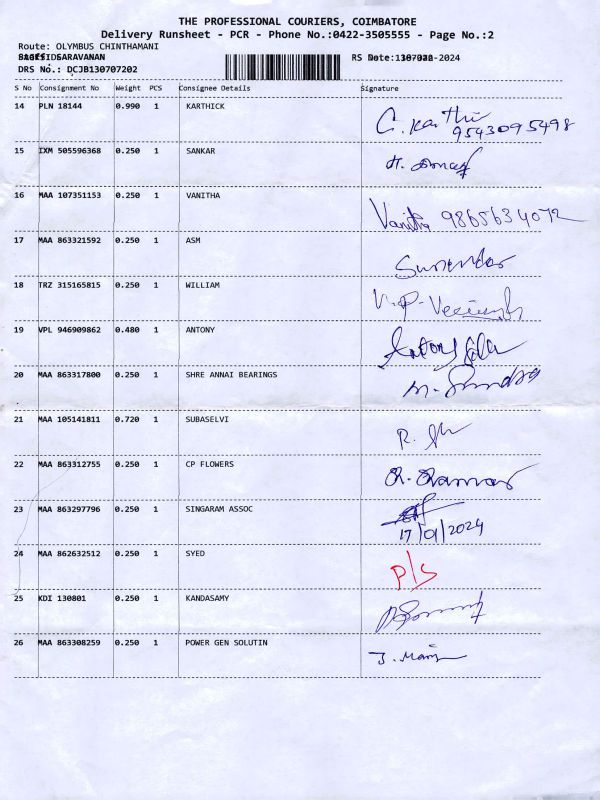 THE PROFESSIONAL COURIERS, COIMBATORE
Delivery Runsheet - PCR - Phone No.:0422-3505555 - Page No.:2
Route: OLYMBUS CHINTHAMANI
SARAVANAN RS Date: -2024
DRS No.: DCJB130707202
S No Consignment No Weight PCS Consignee Details Signature
14 PLN 18144 0.990 1 KARTHICK
9543095498
15 IXM 505596368 0.250 1 SANKAR
16 MAA 107351153 0.250 1 VANITHA
Vanitha 9865634072
17 MAA 863321592 0.250 1 ASM
Surendar
18 TRZ 315165815 0.250 1 WILLIAM
19 VPL 946909862 0.480 1 ANTONY
Antony
20 MAA 863317800 0.250 1 SHRE ANNAI BEARINGS
21 MAA 105141811 0.720 1 SUBASELVI
22 MAA 863312755 0.250 1 CP FLOWERS
23 MAA 863297796 0.250 1 SINGARAM ASSOC
17/01/2024
24 MAA 862632512 0.250 1 SYED
P/S
25 KDI 130801 0.250 1 KANDASAMY
26 MAA 863308259 0.250 1 POWER GEN SOLUTIN
J. Mani